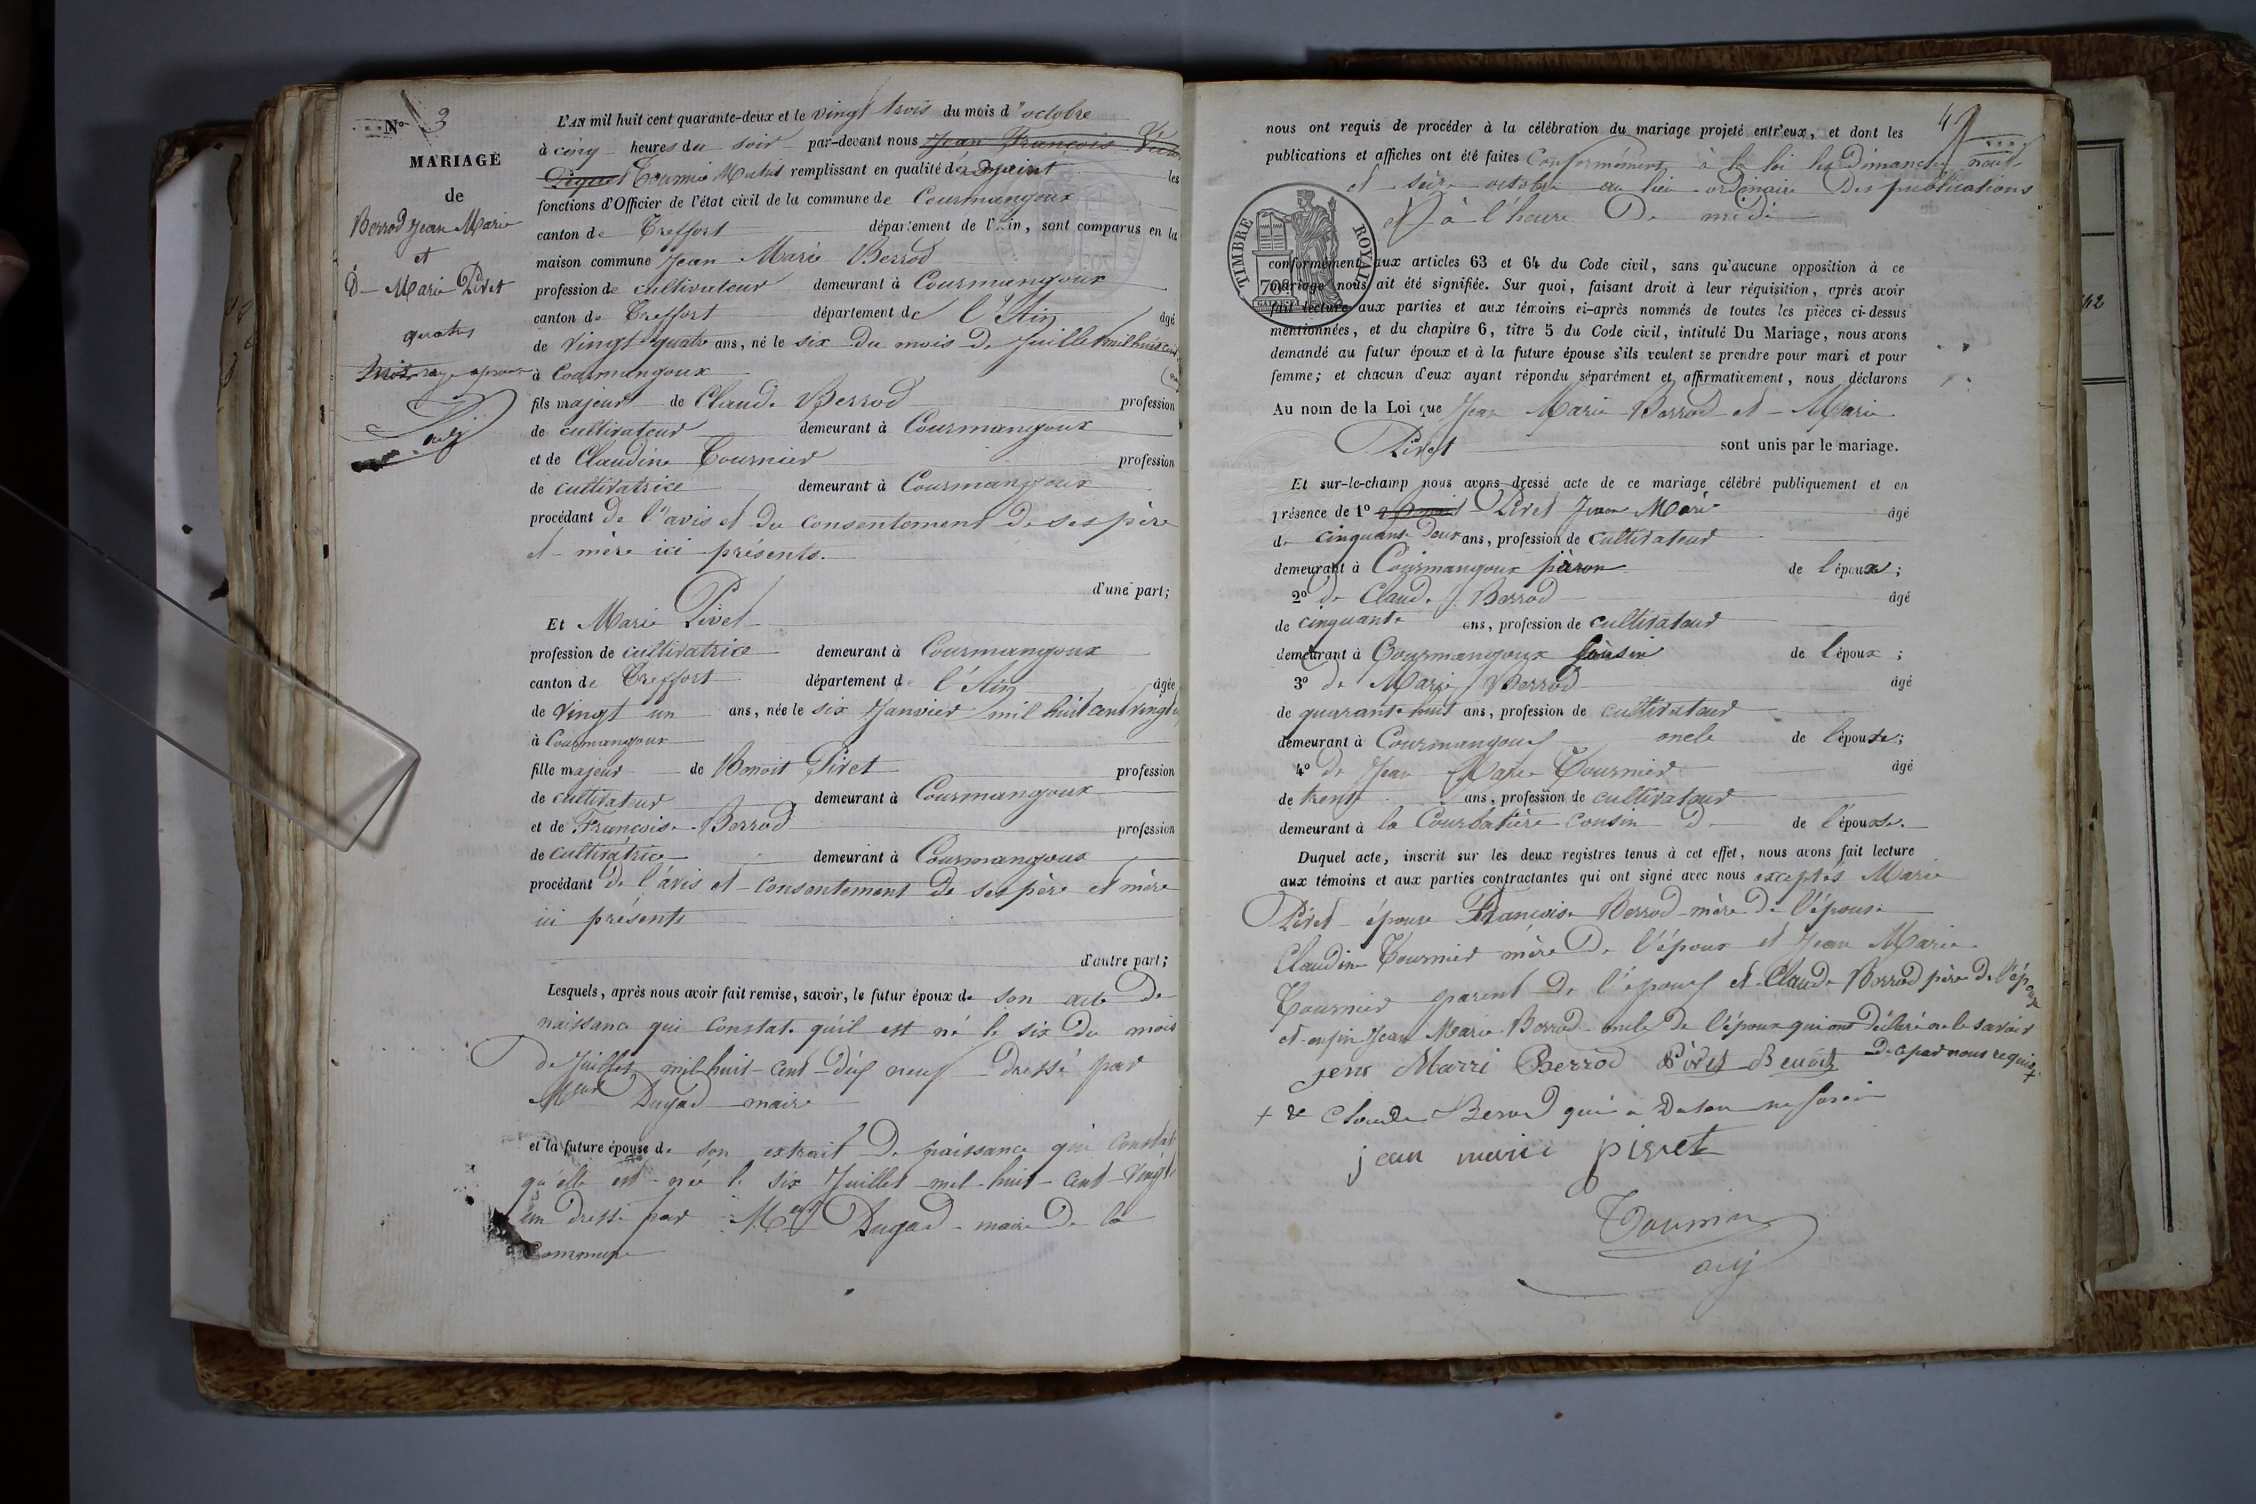 No 3
MARIAGE
de
Berrod Jean Marie
et
D Marie Piret
quatre
L'AN mil huit cent quarante-deux et le vingt trois du mois d'octobre
à cinq heures du soir par-devant nous Jean Francois
Tournie remplissant en qualité d'adjoint les
fonctions d'Officier de l'état civil de la commune de Courmangoux
canton de Treffort département de l'Ain, sont comparus en la
maison commune Jean Marie Berrod
profession de cultivateur demeurant à Courmangoux
canton de Treffort département de l'Ain âgé
de vingt quatre ans, né le six du mois de Juillet mil huit cent
à Courmangoux
fils majeur de Claude Berrod profession
de cultivateur demeurant à Courmangoux
et de Claudine Tournier profession
de cultivatrice demeurant à Courmangoux
procédant de l'avis et du consentement de ses père
et mère ici présents.
d'une part;
Et Marie Piret
profession de cultivatrice demeurant à Courmangoux
canton de Treffort département de l'Ain âgée
de vingt un ans, née le six Janvier mil huit cent vingt
à Courmangoux
fille majeur de Benoit Piret profession
de cultivateur demeurant à Courmangoux
et de Francoise Berrod profession
de cultivatrice demeurant à Courmangoux
procédant de l'avis et consentement de ses père et mère
ici présents
d'autre part;
Lesquels, après nous avoir fait remise, savoir, le futur époux de son acte de
naissance qui constate qu'il est né le six du mois
de Juillet mil huit cent dix neuf dressé par
Mr Dugad maire
et la future épouse de son extrait de naissance qui constate
qu'elle est née le six Juillet mil huit cent vingt
un dressé par Mr Dugad maire de la
Commune
4
nous ont requis de procéder à la célébration du mariage projeté entr'eux, et dont les
publications et affiches ont été faites conformément à la loi les Dimanches neuf
et seize octobre au lieu ordinaire des publications
et à l'heure de midi
TIMBRE ROYAL
conformément aux articles 63 et 64 du Code civil, sans qu'aucune opposition à ce
mariage nous ait été signifiée. Sur quoi, faisant droit à leur réquisition, après avoir
fait lecture aux parties et aux témoins ci-après nommés de toutes les pièces ci-dessus
mentionnées, et du chapitre 6, titre 5 du Code civil, intitulé Du Mariage, nous avons
demandé au futur époux et à la future épouse s'ils veulent se prendre pour mari et pour
femme; et chacun d'eux ayant répondu séparément et affirmativement, nous déclarons
Au nom de la Loi que Jean Marie Berrod et Marie
Piret sont unis par le mariage.
Et sur-le-champ nous avons dressé acte de ce mariage célébré publiquement et en
présence de 1o Piret Jean Marie âgé
de cinquante deux ans, profession de cultivateur
demeurant à Courmangoux de l'épouse;
2o de Claude Berrod âgé
de cinquante ans, profession de cultivateur
demeurant à Courmangoux cousin de l'époux;
3o de Marie Berrod âgé
de quarante huit ans, profession de cultivateur
demeurant à Courmangoux oncle de l'épouse;
4o de Jean Marie Tournier âgé
de trente ans, profession de cultivateur
demeurant à la Courbatière cousin de de l'épouse.
Duquel acte, inscrit sur les deux registres tenus à cet effet, nous avons fait lecture
aux témoins et aux parties contractantes qui ont signé avec nous exceptés Marie
Piret épouse Françoise Berrod mère de l'épouse
Claudine Tournier mère de l'époux et Jean Marie
Tournier parent de l'époux et Claude Berrod père de l'époux
et enfin Jean Marie Berrod oncle de l'époux qui ont déclaré ne le savoir
de ce par nous requis
jean Marri Berrod Piret Benoit
+ et Claude Berrod qui a
jean marie piret
Tournier
adj